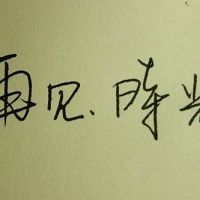 再见.时光